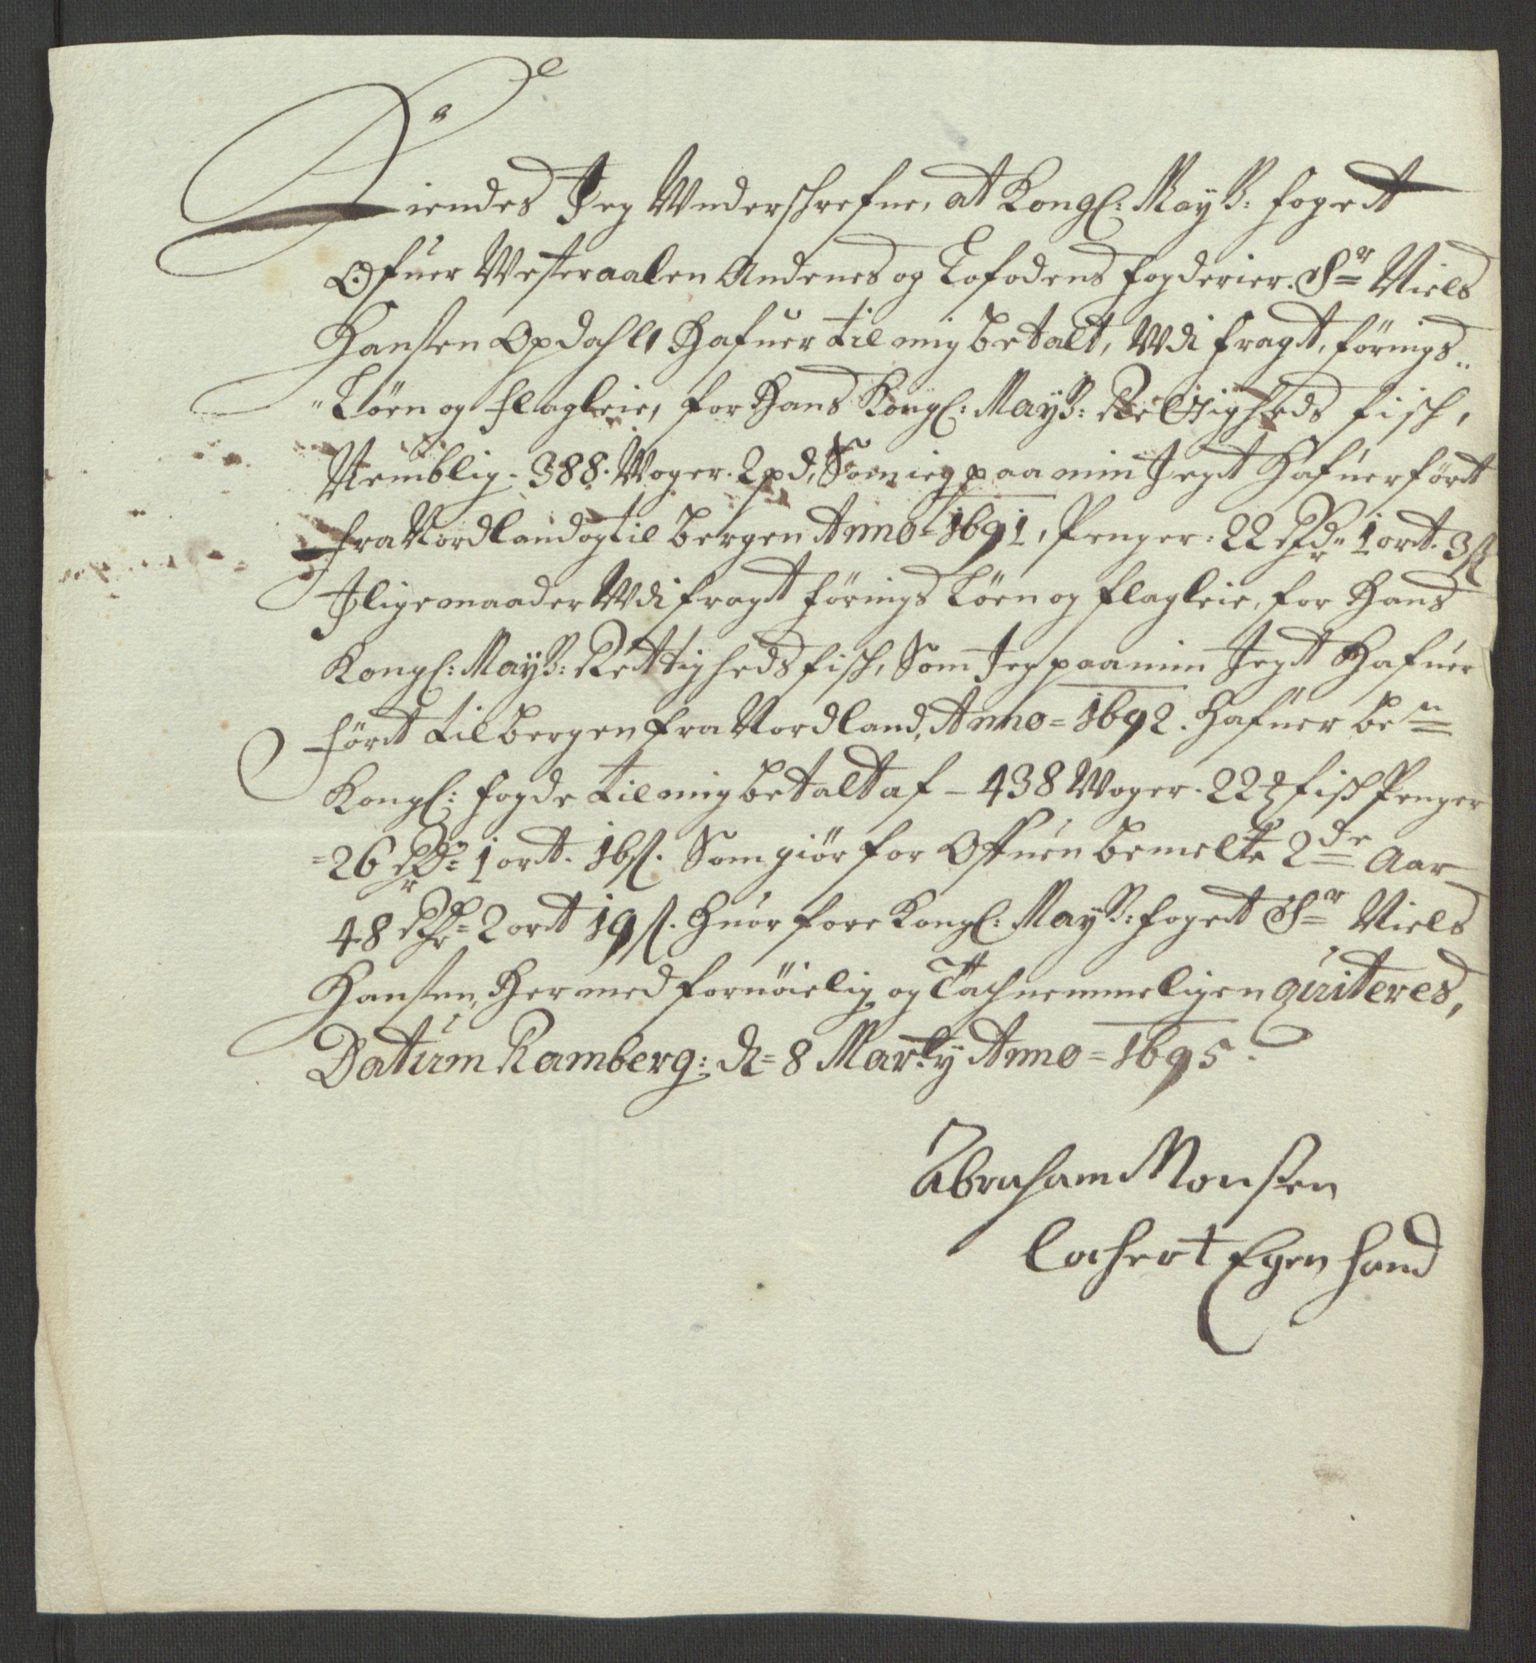 Kiendes Jeg Underschrefne, at Kongl: Mayß: fogett
Ofuer Westeraalen Andenes og Lofodens fogderier. Sr Niels
Hansen Opdahll Hafuer til mig betalt, Udi fragt, förings„
„Löen og flagleie, for Hans Kongl: Mayß: Rettigheds fisch,
Nemblig. 388. Woger. 2 pd, Som ieg paa min Jegt Hafuer fört
fra Nordland og til bergen Anno = 1691, Penger: 22 Rdr 1 ort. 3 s
J lige maader Udi fragt förings Löen og flagleie, for Hans
Kongl: Mayß: Rettigheds fisch, Som Jeg paa min Jegt Hafuer
fört til bergen fra Nordland, Anno = 1692. Hafuer ben
Kongl: fogde til mig betalt af – 438 Woger. 22 ℔ fisch Penger
= 26 Rdr 1 ort. 16 s. Som giör for Offuen bemelte 2de Aar
48 Rdr 2 ort 19 s. Huor fore Kongl: Mayß: fogett Sr Niels
Hansen, Her med fornöielig og Tachnemmeligen quiteres,
Datum Ramberg: d = 8 Marty Anno = 1695.
Abraham Monsen
Cochert Egen hand